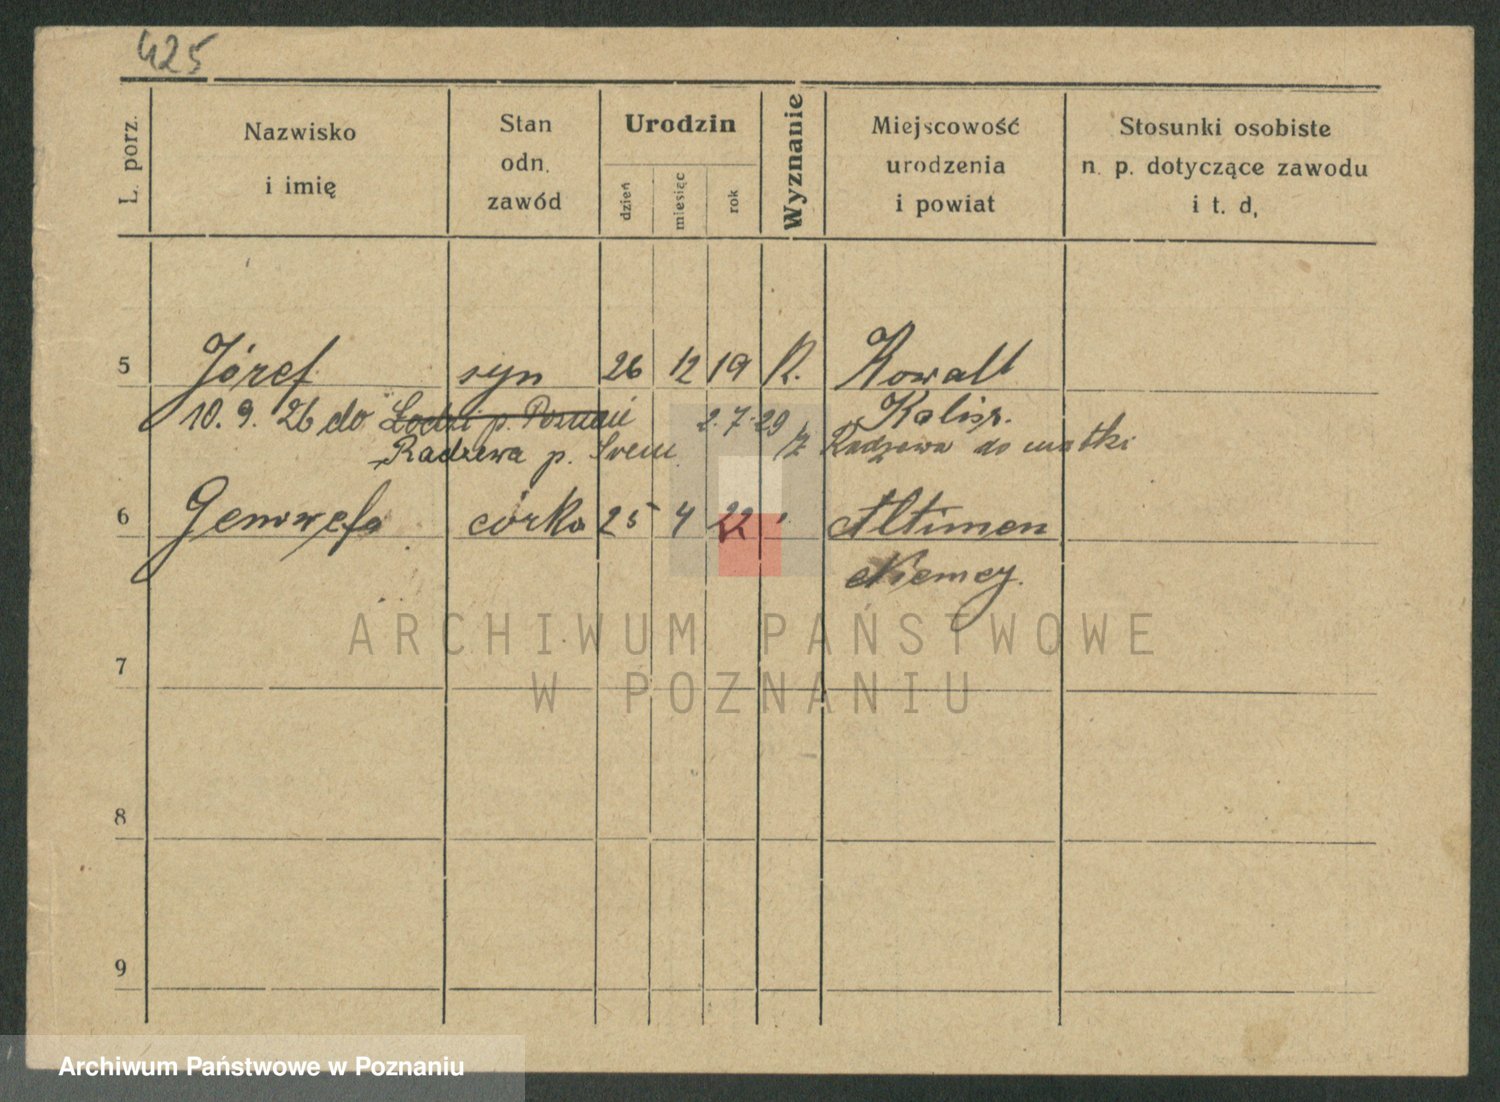 425
L. porz.
Nazwisko
i imię
Stan
odn.
zawód
Urodzin
dzień
miesiąc
rok
Wyznanie
Miejscowość
urodzenia
i powiat
Stosunki osobiste
n. p. dotyczące zawodu
i t. d,
5 Józef syn 26 12 19 R. Kowall
10. 9. 26 do Łodzi p. Poznań 2.7.29 Kalisz.
Radzewa p. Śrem z Radzewa do matki
6 Genowefa córka 25 4 22 " Altimen
Niemcy.
7
8
9
ARCHIWUM PAŃSTWOWE
W POZNANIU
Archiwum Państwowe w Poznaniu